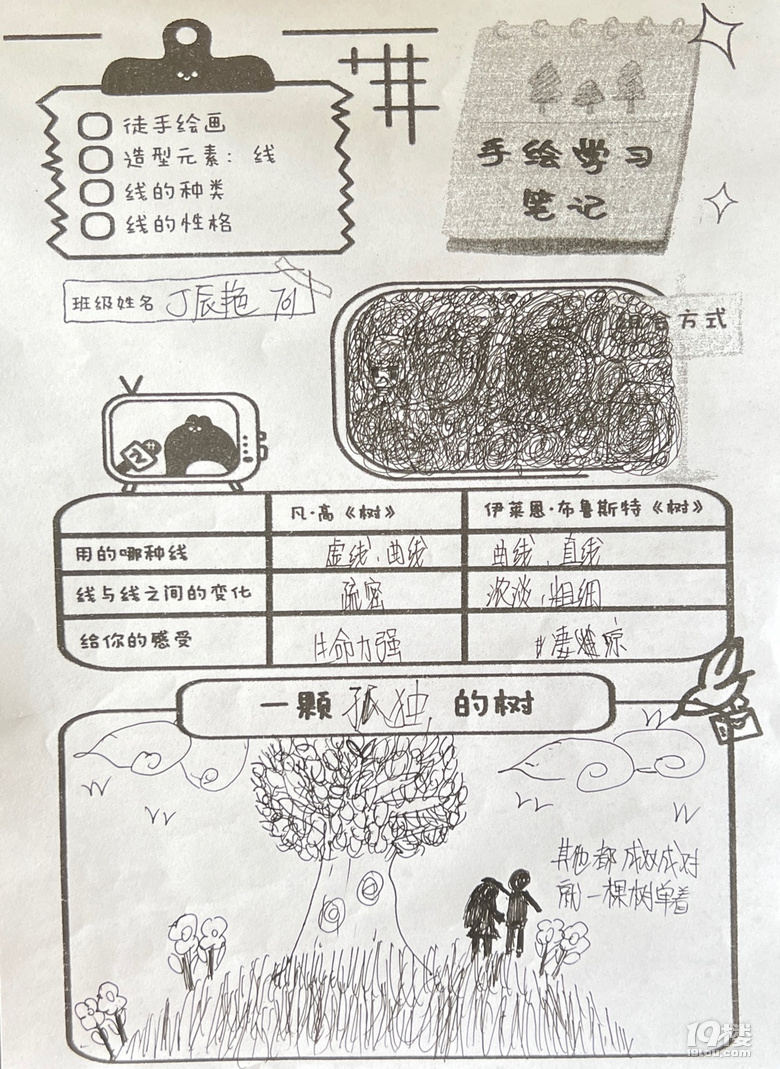 徒手绘画
造型元素：线
线的种类
线的性格
手绘学习
笔记
班级姓名 丁辰艳 701
组合方式
2
凡·高《树》 伊莱恩·布鲁斯特《树》
用的哪种线 虚线、曲线 曲线、直线
线与线之间的变化 疏密 浓淡、粗细
给你的感受 生命力强 凄凉
一颗孤独的树
其他都成双成对
就一棵树单着
19楼
19lou.com